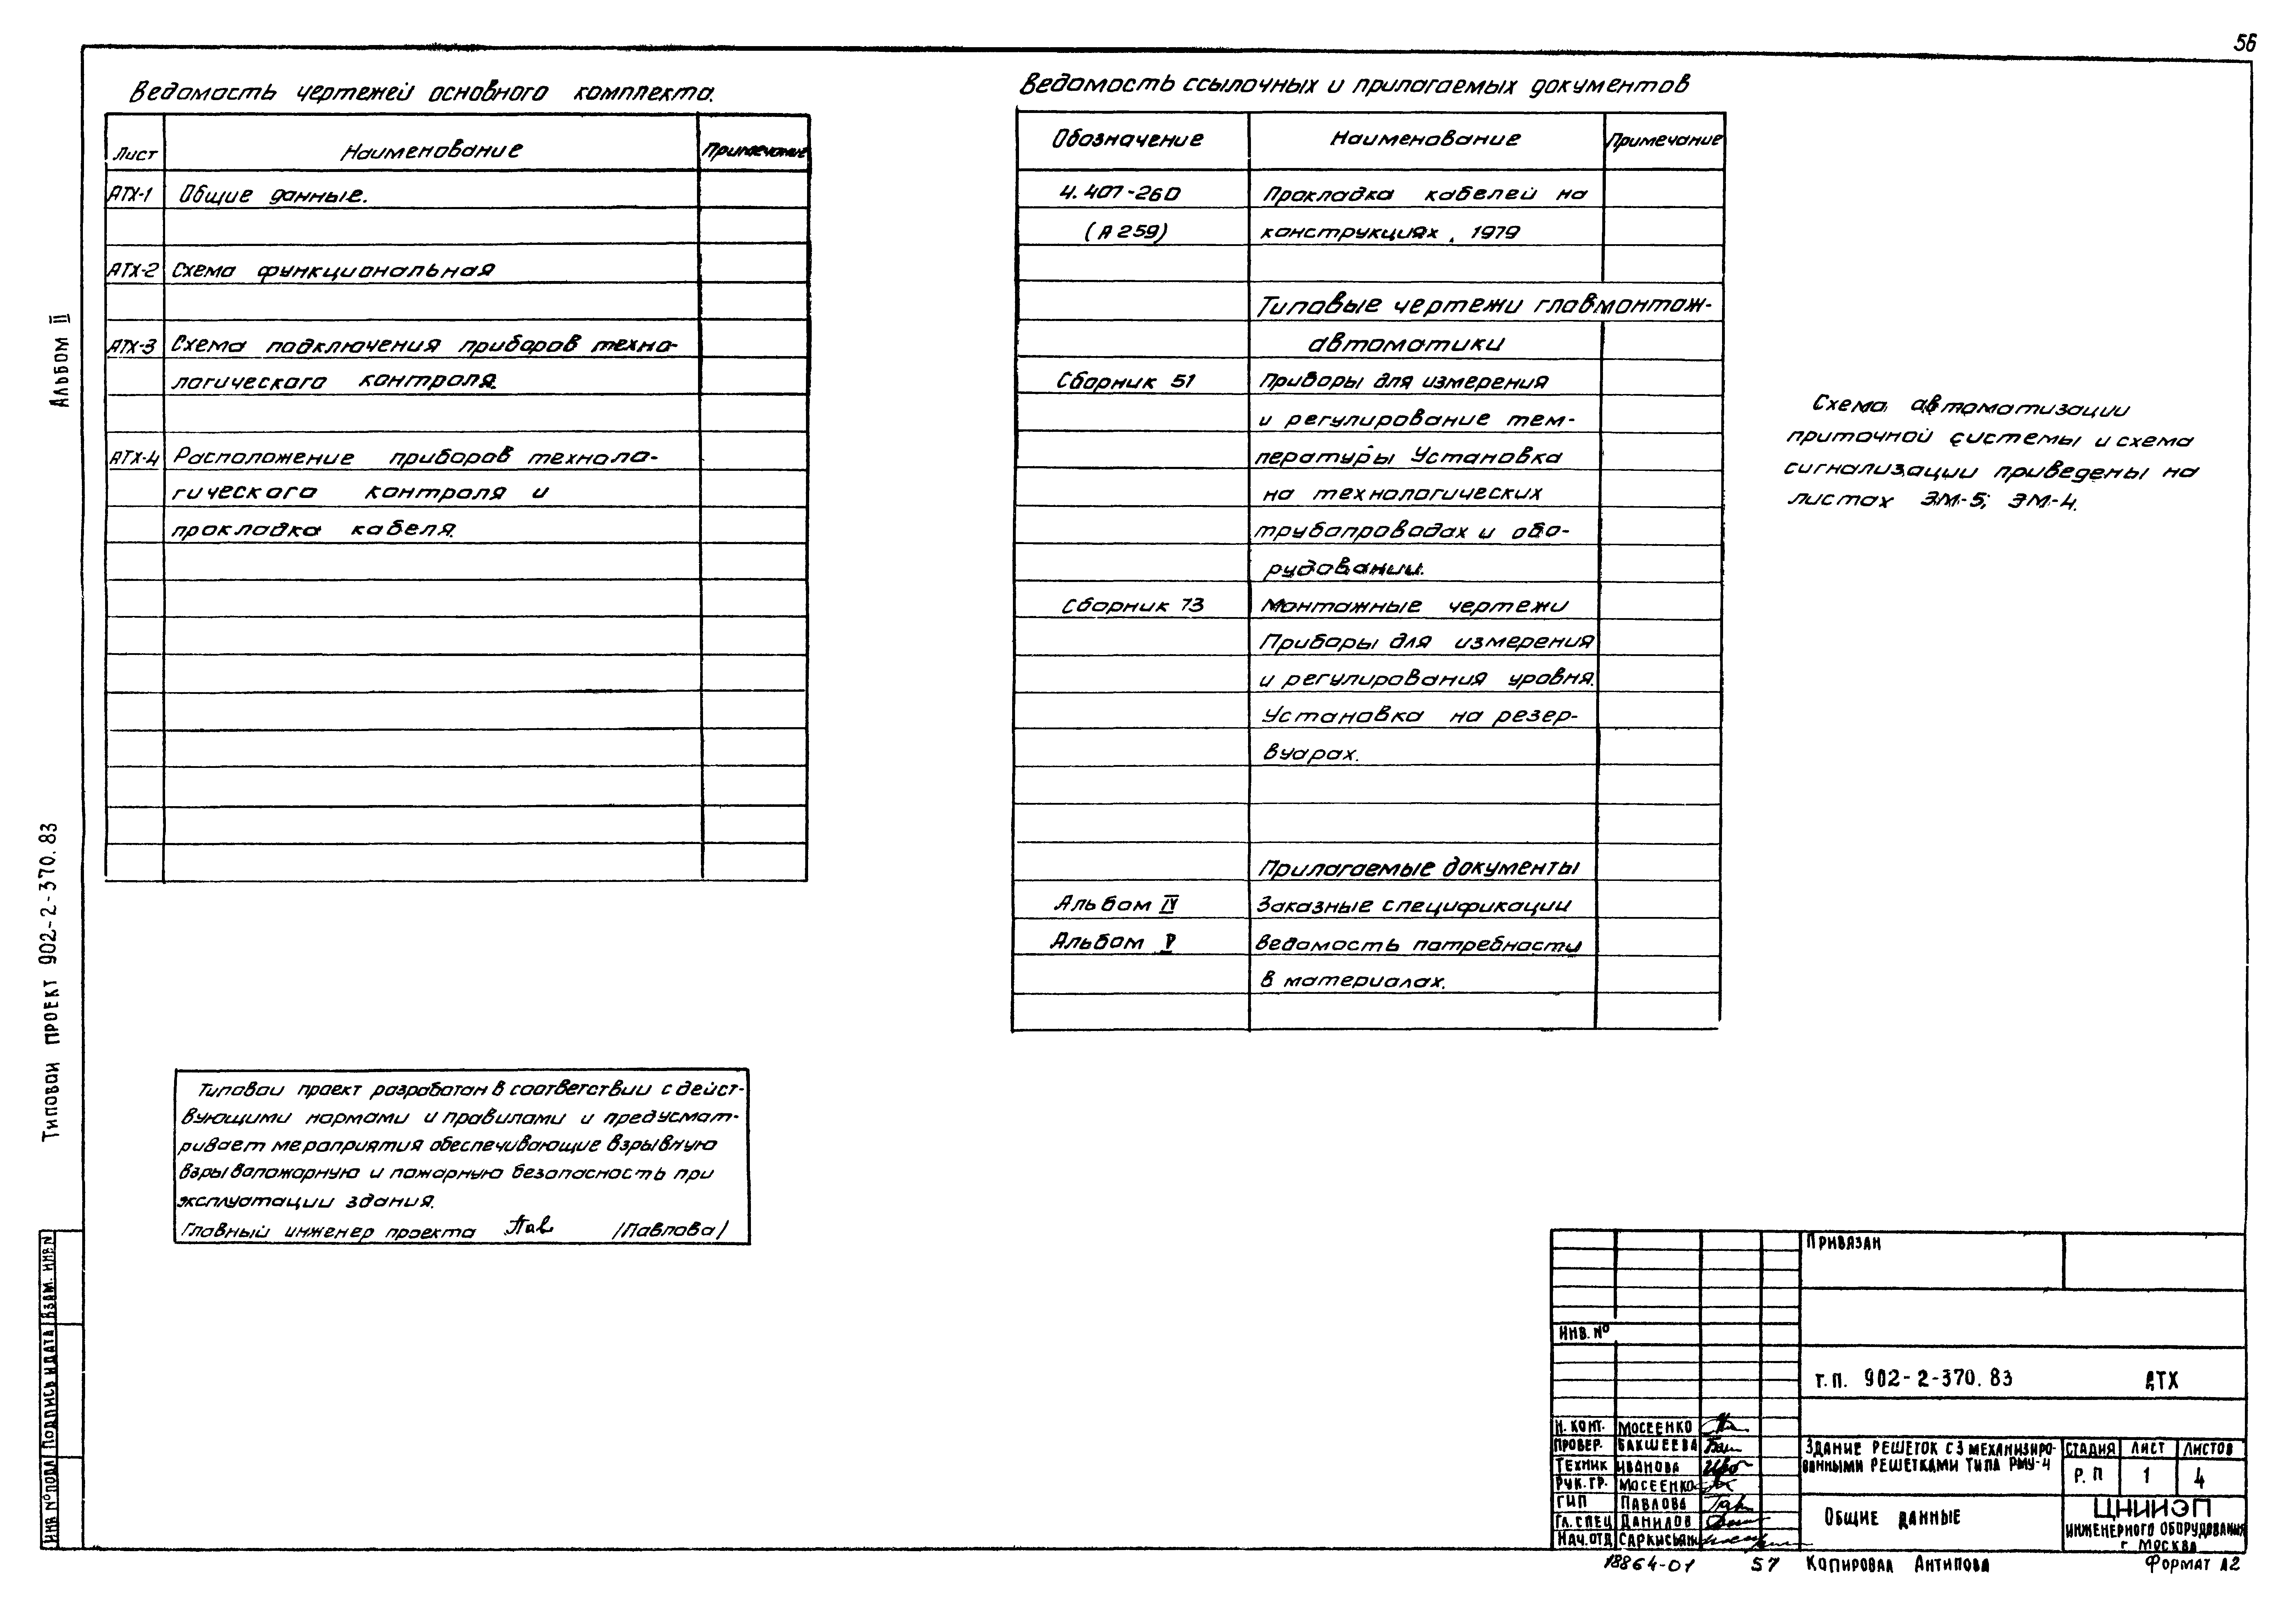 56
Ведомость чертежей основного комплекта.
Лист Наименование Примечание
АТХ-1 Общие данные.
АТХ-2 Схема функциональная
АТХ-3 Схема подключения приборов техно-
логического контроля.
АТХ-4 Расположение приборов техноло-
гического контроля и
прокладка кабеля.
Ведомость ссылочных и прилагаемых документов
Обозначение Наименование Примечание
4.407-260 Прокладка кабелей на
(А259) конструкциях, 1979
Типовые чертежи главмонтаж-
автоматики
Сборник 51 Приборы для измерения
и регулирование тем-
пературы Установка
на технологических
трубопроводах и обо-
рудовании.
Сборник 73 Монтажные чертежи
Приборы для измерения
и регулирования уровня.
Установка на резер-
вуарах.
Прилагаемые документы
Альбом IV Заказные спецификации
Альбом V Ведомость потребности
в материалах.
Схема автоматизации
приточной системы и схема
сигнализации приведены на
листах ЭМ-5; ЭМ-4.
Типовой проект разработан в соответствии с дейст-
вующими нормами и правилами и предусмат-
ривает мероприятия обеспечивающие взрывную
взрывапожарную и пожарную безопасность при
эксплуатации здания.
Главный инженер проекта Пав /Павлова/
Альбом II
Типовой проект 902-2-370.83
Инв №подл Подпись и дата Взам. инв.N
Привязан
Инв. №
Т.П. 902-2-370.83 АТХ
Н. конт. Мосеенко
Провер. Бакшеева
Техник Иванова
Рук. гр. Мосеенко
ГИП Павлова
Гл. спец Данилов
Нач. отд Саркисьян
Здание решеток с 3 механизиро-
ванными решетками типа РМУ-4
Стадия Лист Листов
Р.П 1 4
Общие данные
ЦНИИЭП
инженерного оборудования
г Москва
18864-01 57 Копировал Антипова Формат А2